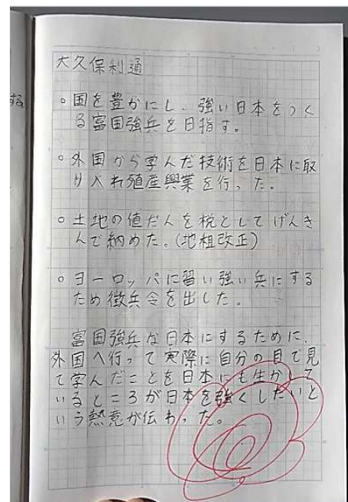 大久保利通
○国を豊かにし、強い日本をつく
る富国強兵を目指す。
○外国から学んだ技術を日本に取
り入れ殖産興業を行った。
○土地の値だんを税としてげんき
んで納めた。(地租改正)
○ヨーロッパに習い強い兵にする
ため徴兵令を出した。
富国強兵な日本にするために、
外国へ行って実際に自分の目で見
て学んだことを日本にも生かして
いるところが日本を強くしたいと
いう熱意が伝わった。